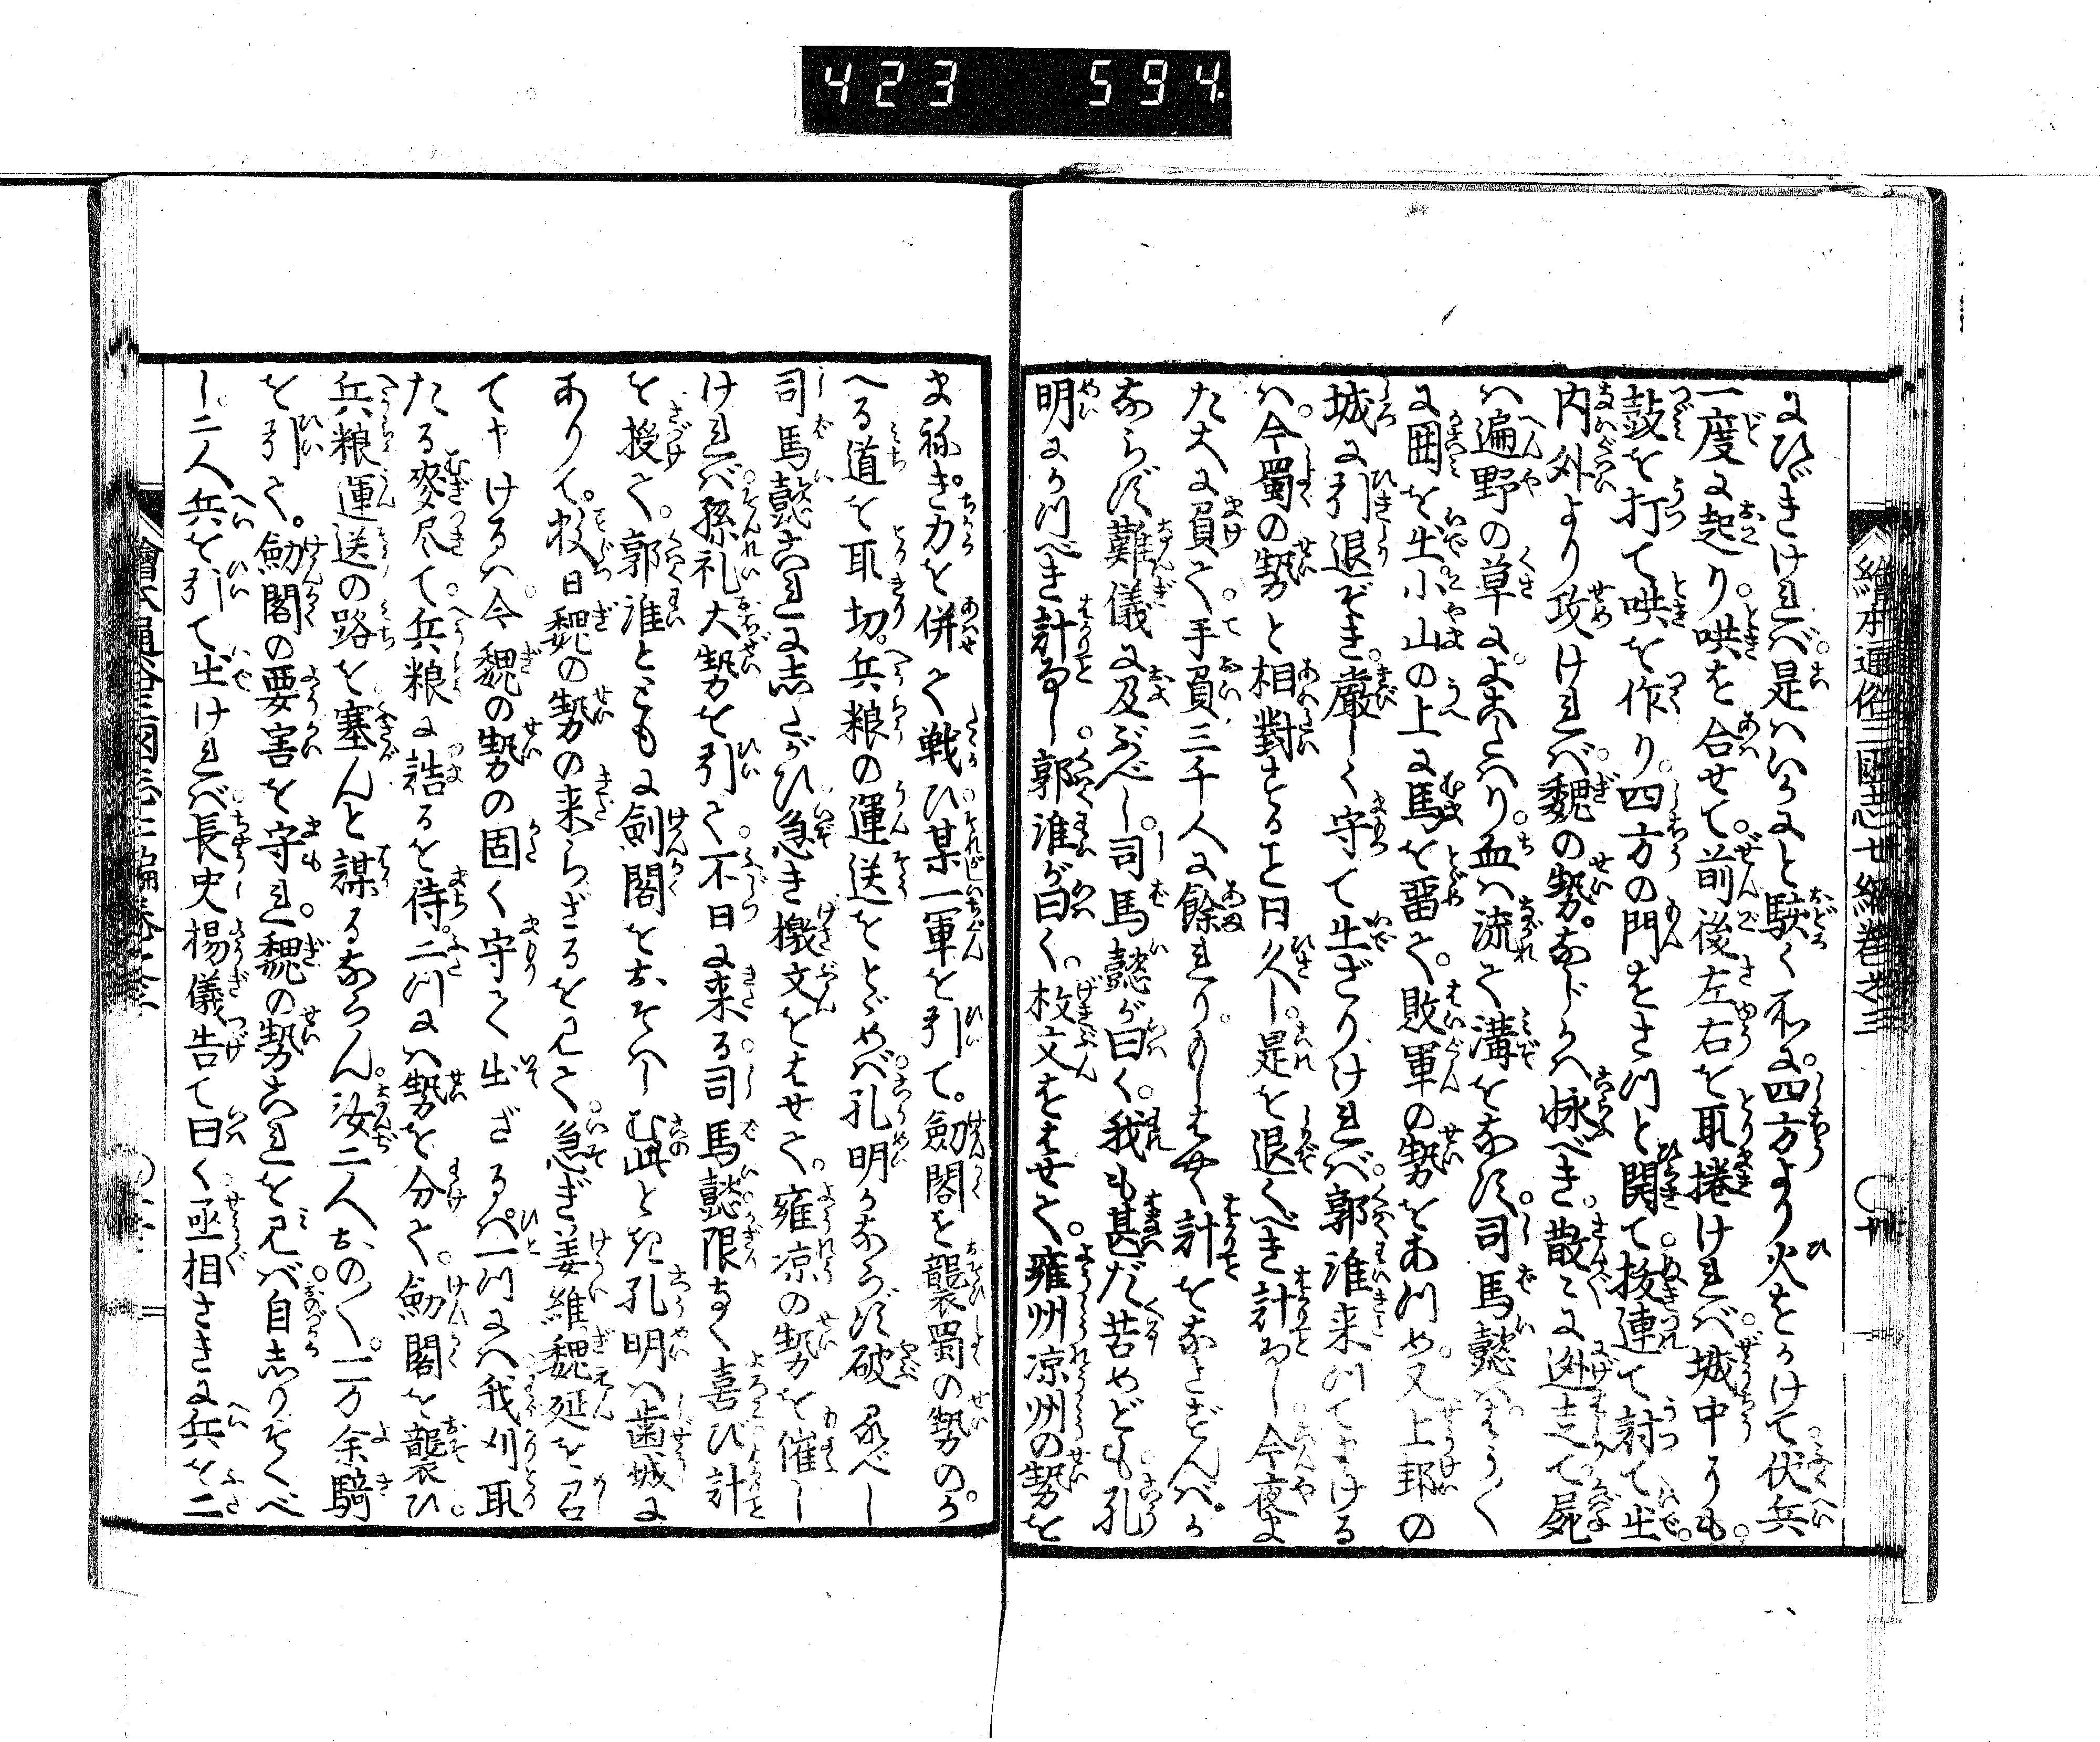 423 594
繪本通俗三國志七編卷之三
にひゞきければ是はいかにと駭く所に四方より火をかけて伏兵
一度に起り哄を合せて前後左右を取捲ければ城中よりも
鼓を打て哄を作り四方の門をさつと開て抜連て討て出
内外より攻ければ魏の勢なじかへ怺べき散々に迯走て屍
は遍野の草によこたはり血は流て溝をなす司馬懿はやう〳〵
に囲を出小山の上に馬を畱て敗軍の勢をあつめ又上邽の
城に引退ぞき嚴しく守て出ざりければ郭淮来つてまける
は今蜀の勢と相對すること日久し是を退くべき計なし今夜ま
た大に負て手負三千人に餘れりもしはやく計をなさずんばか
ならず難儀に及ぶべし司馬懿が曰く我も甚だ苦めども孔
明にかつべき計なし郭淮が曰く檄文をはせて雍州凉州の勢を
まねき力を併て戦ひ某一軍を引て劔閣を襲蜀の勢のか
へる道を取切兵粮の運送をとゞめば孔明かならず破るべし
司馬懿これにしたがひ急き檄文をはせて雍凉の勢を催し
ければ孫礼大勢を引て不日に来る司馬懿限なく喜び計
を授て郭淮とともに劍閣をおそはしむ此とき孔明は歯城に
ありて数日魏の勢の来らざるを見て急ぎ姜維魏延を召
て申けるは今魏の勢の固く守て出ざるは一つには我刈取
たる麥尽て兵粮に詰るを待二つには勢を分て劔閣を襲ひ
兵粮運送の路を塞んと謀るならん汝二人おの〳〵一万余騎
を引て劔閣の要害を守れ魏の勢これを見ば自しりぞくべ
し二人兵を引て出ければ長史楊儀告て曰く丞相さきに兵を二